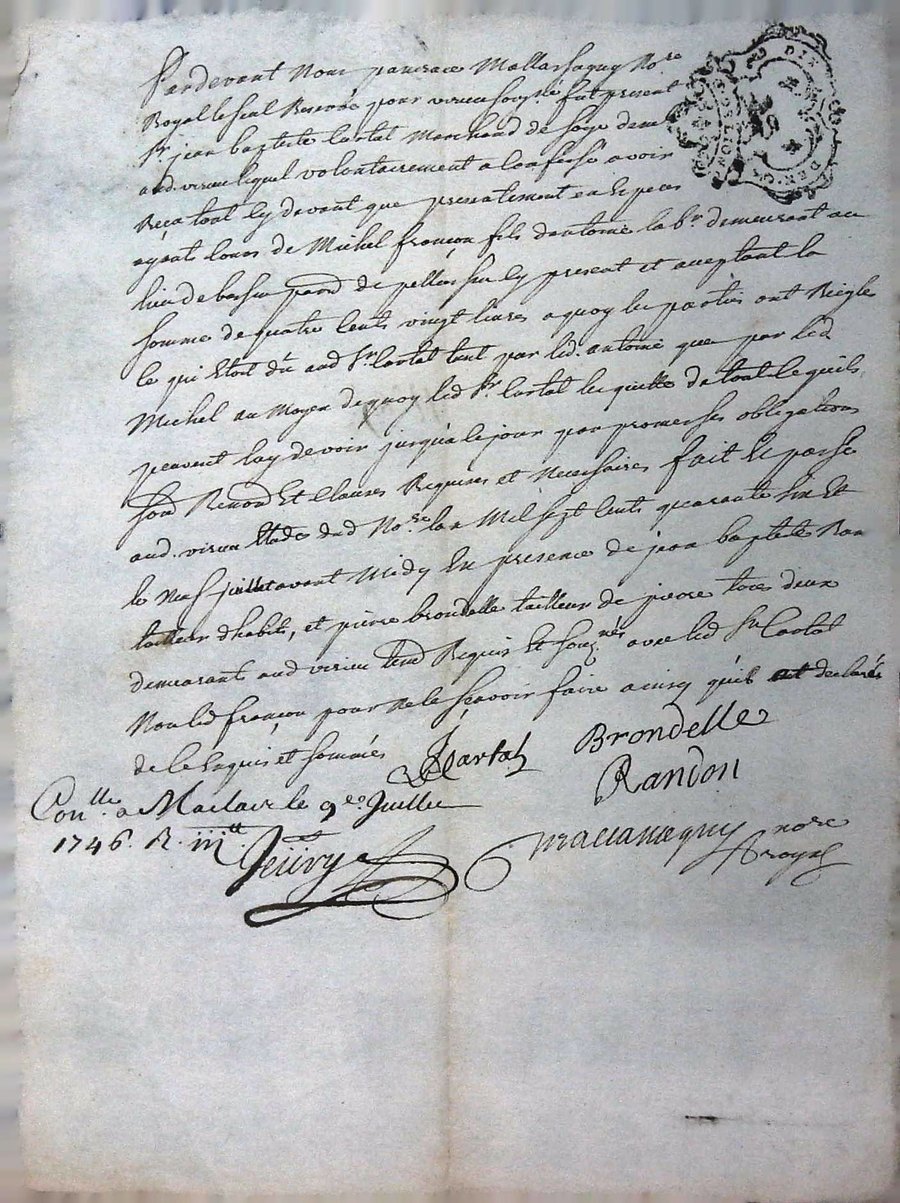 Pardevant Nous pancrace Mallassagny No.re
Royal le seul Reservé pour virieu soug.né fut present
S.r jean baptiste Cartal Marchand de soye dem.t
aud. virieu lequel volontairement a confessé avoir
Reçu tout cy devant que presentement en Especes
ayant cours de Michel françon fils d'antoine lab.r demeurant au
lieu de par.se de pelussin cy present et acceptant la
somme de quatre cents vingt livres a quoy les parties ont Reiglé
ce qui Etoit dû aud S.r Cartal tant par led. antoine que par led.
Michel au moyen de quoy led S.r Cartal les quitte de tout ce quils
peuvent luy devoir jusqua ce jour par promesses obligations
sous Renon Et clauses Requises et Necessaires fait Et passé
aud. virieu Etude dud No.re lan Mil sept cents quarante six Et
le Neuf juillet avant Midy En presence de jean baptiste Ran
tailleur d'habits, et pierre brondelle tailleur de pierre tous deux
demeurants aud virieu tem.d Requis Et soug.nés avec led S.r Cartal
Non led françon pour ne le sçavoir faire ainsy qu'ils ont declarés
de ce Enquis et sommés
Cartal Brondelle
Randon
Con.lle a Maclair le 9.e Juillet
1746. R.
mallassagny no.re
royal